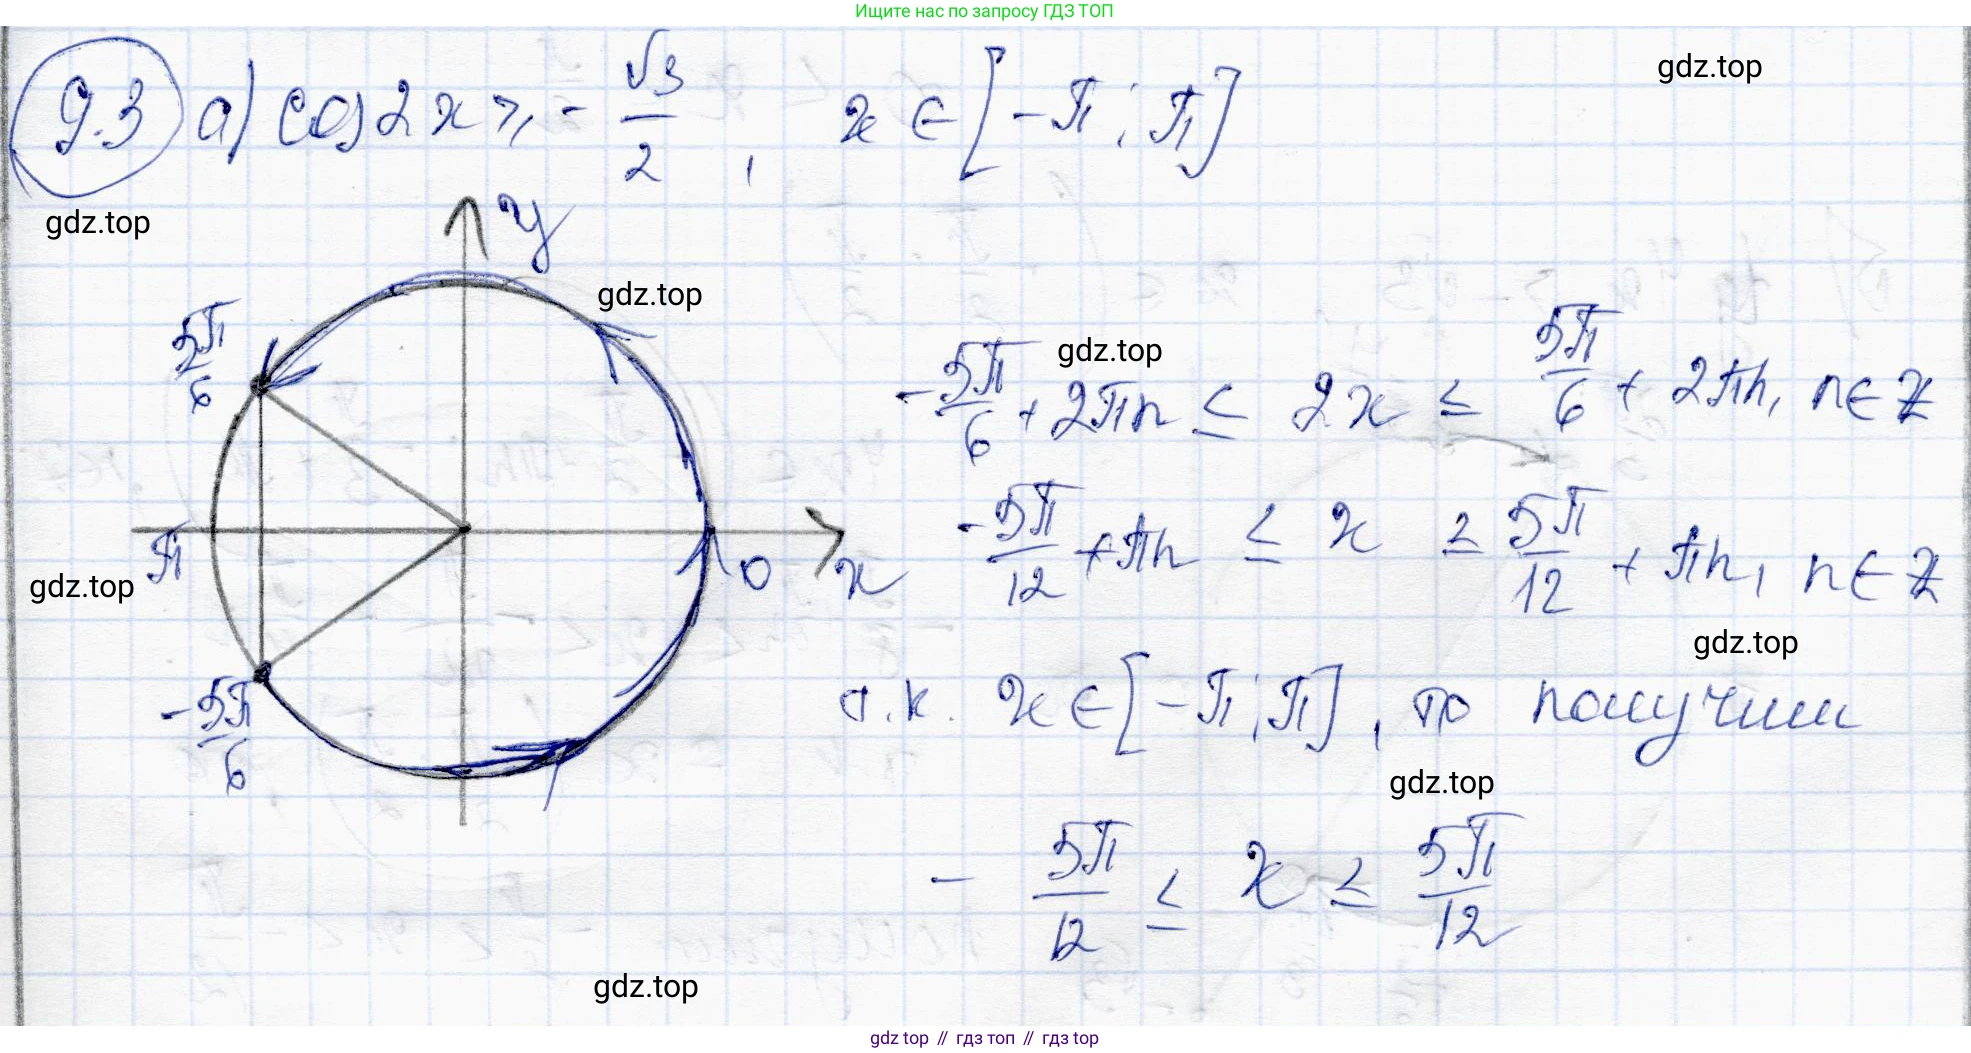 Ищите нас по запросу ГДЗ ТОП
9.3 а) cos 2x ⩾ - √3/2, x ∈ [-π; π]
gdz.top
gdz.top
y
gdz.top
5π/6
gdz.top
-5π/6 + 2πn ≤ 2x ≤ 5π/6 + 2πn, n∈Z
π
0
x
-5π/12 + πn ≤ x ≤ 5π/12 + πn, n∈Z
gdz.top
gdz.top
-5π/6
т.к. x ∈ [-π; π], то получим
gdz.top
- 5π/12 ≤ x ≤ 5π/12
gdz.top
gdz top // гдз топ // гдз top